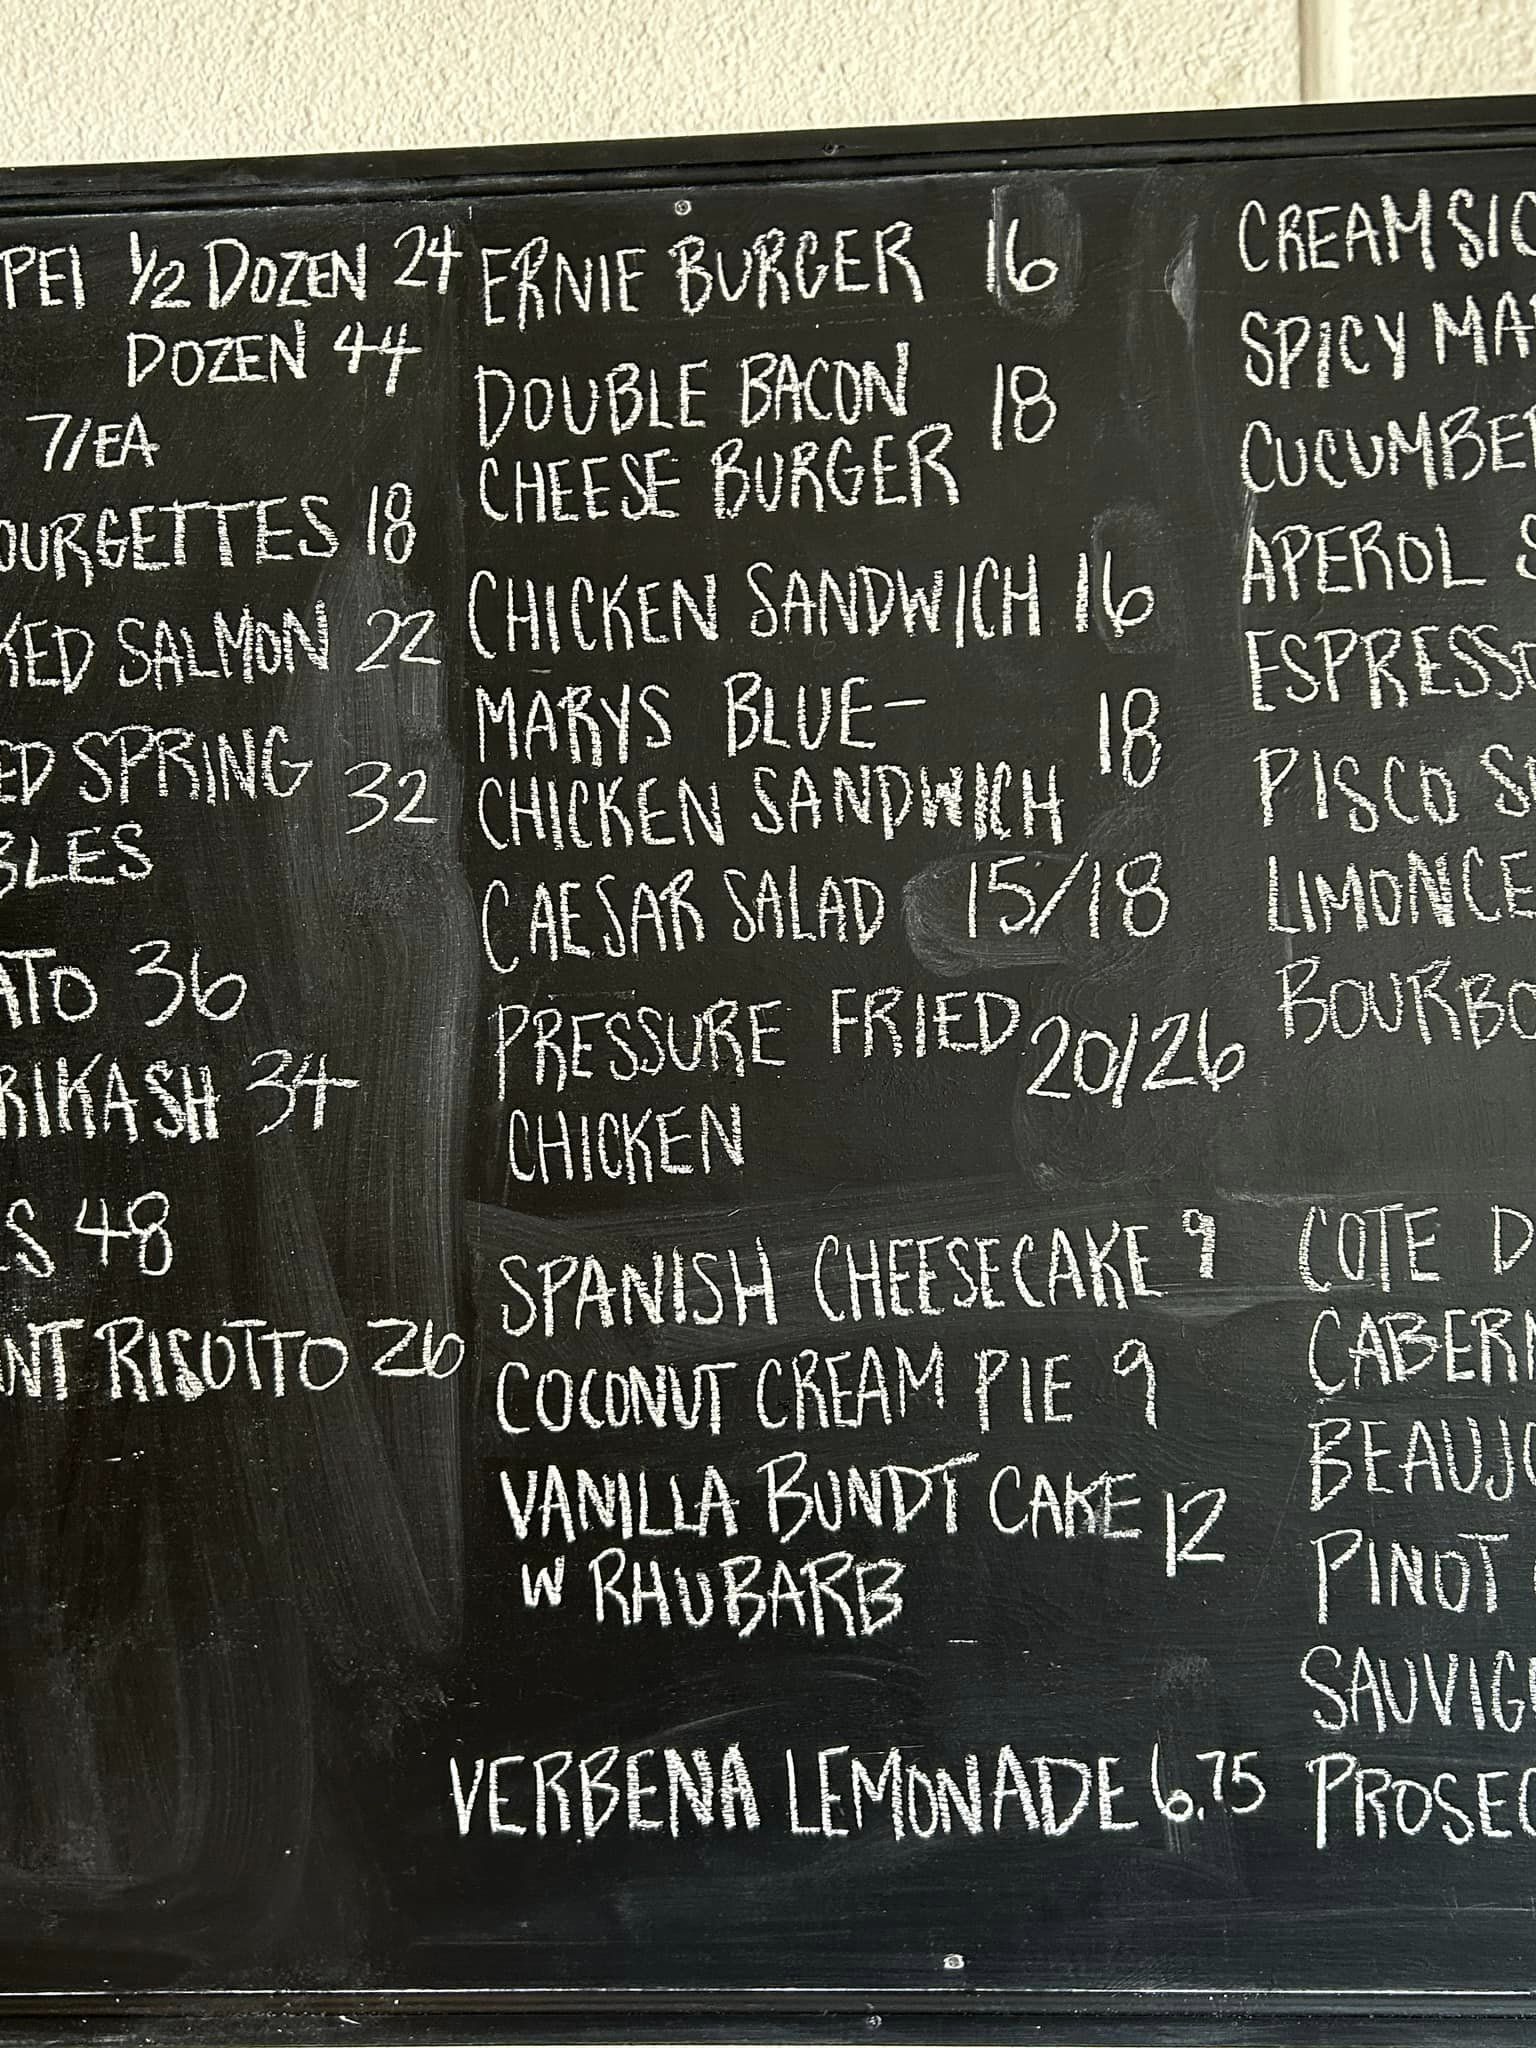 PEI 1/2 DOZEN 24
DOZEN 44
7/EA
OURGETTES 18
KED SALMON 22
ED SPRING 32
BLES
ATO 36
RIKASH 34
S 48
ANT RISOTTO 26
ERNIE BURGER 16
DOUBLE BACON 18
CHEESE BURGER
CHICKEN SANDWICH 16
MARYS BLUE- 18
CHICKEN SANDWICH
CAESAR SALAD 15/18
PRESSURE FRIED 20/26
CHICKEN
SPANISH CHEESECAKE 9
COCONUT CREAM PIE 9
VANILLA BUNDT CAKE 12
W RHUBARB
VERBENA LEMONADE 6.75
CREAMSIC
SPICY MA
CUCUMBE
APEROL S
ESPRESSO
PISCO S
LIMONCE
BOURBO
COTE D
CABERN
BEAUJO
PINOT
SAUVIG
PROSEC